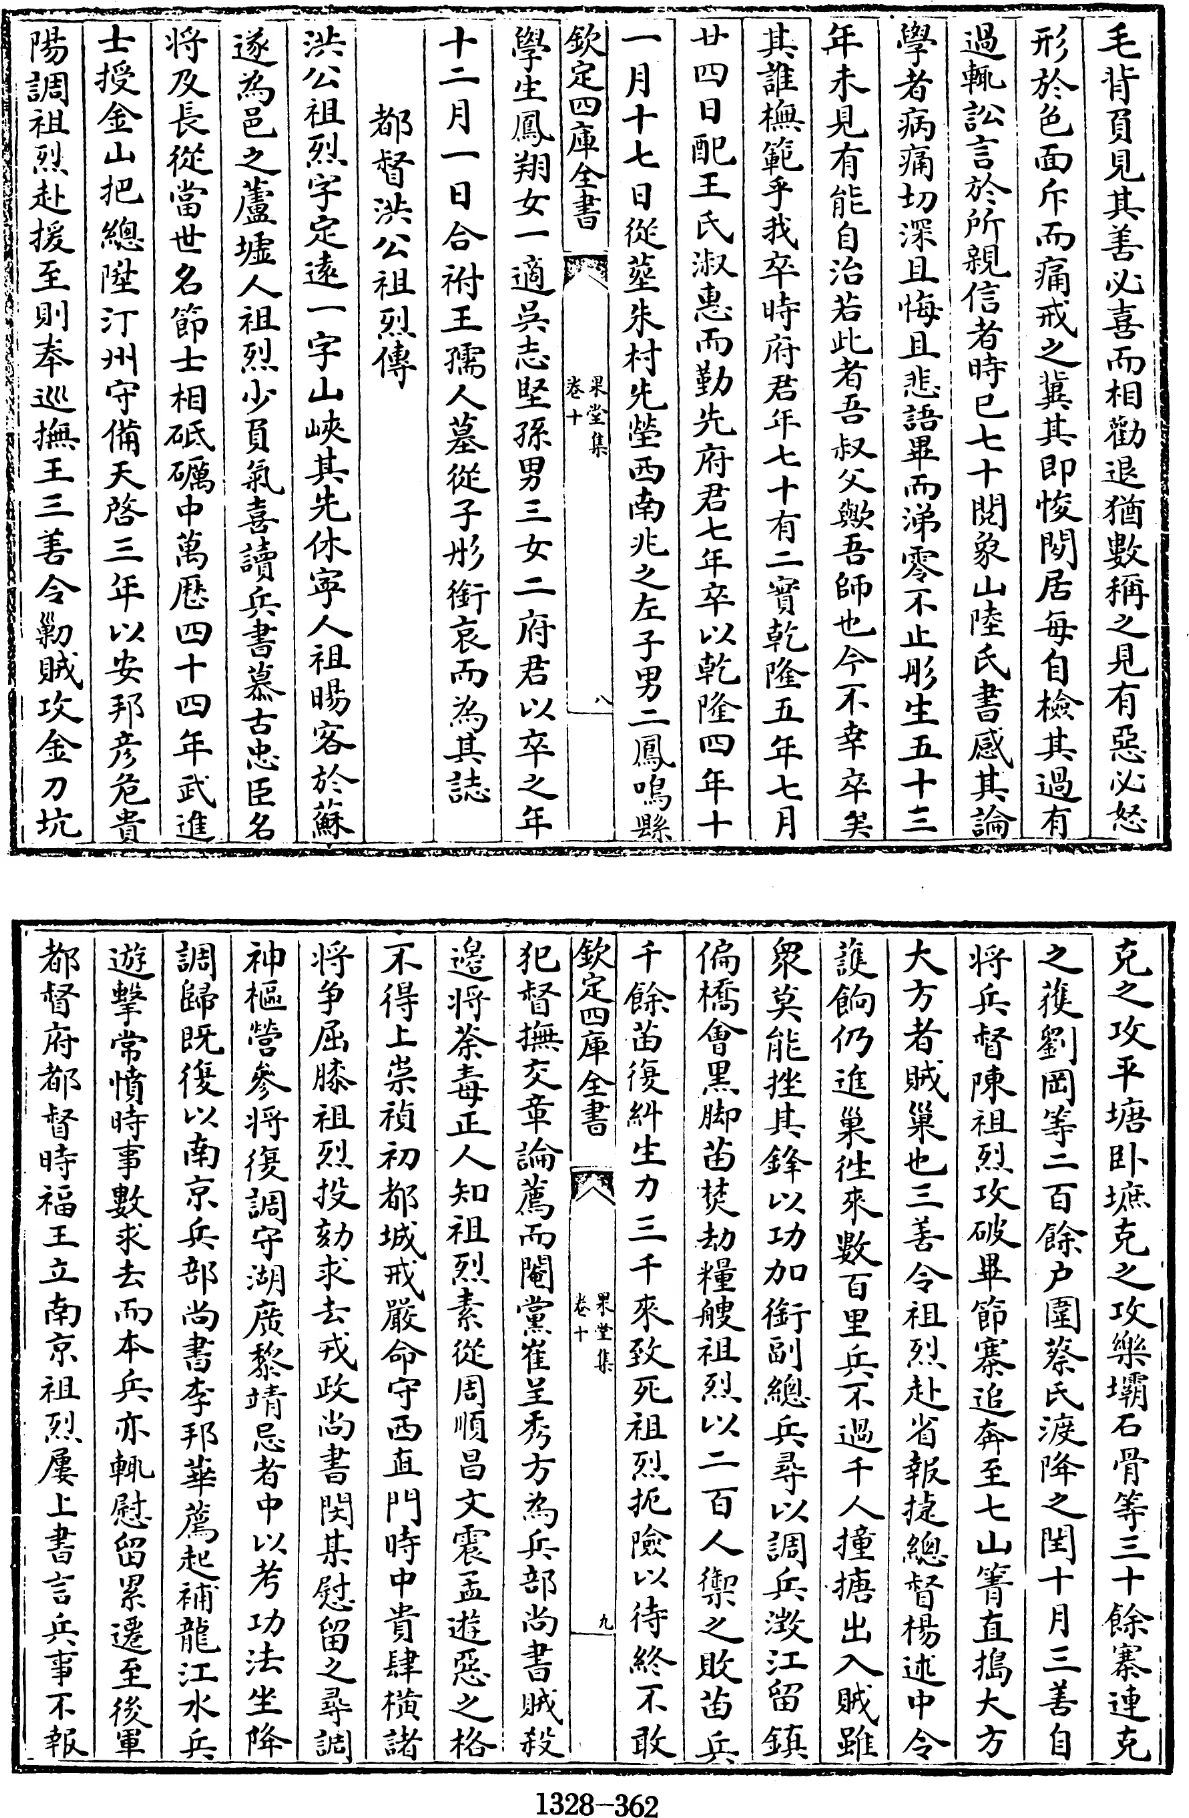 毛背負見其善必喜而相勸退猶數稱之見有惡必怒
形於色面斥而痛戒之冀其即悛閒居每自檢其過有
過輒訟言於所親信者時已七十閱象山陸氏書感其論
學者病痛切深且悔且悲語畢而涕零不止彤生五十三
年未見有能自治若此者吾叔父歟吾師也今不幸卒矣
其誰橅範乎我卒時府君年七十有二實乾隆五年七月
廿四日配王氏淑惠而勤先府君七年卒以乾隆四年十
一月十七日從塟朱村先塋西南兆之左子男二鳳鳴縣
欽定四庫全書
果堂集
卷十
八
學生鳳翔女一適吳志堅孫男三女二府君以卒之年
十二月一日合祔王孺人墓從子彤銜哀而為其誌
都督洪公祖烈傳
洪公祖烈字定遠一字山峽其先休寧人祖暘客於蘇
遂為邑之蘆墟人祖烈少負氣喜讀兵書慕古忠臣名
将及長從當世名節士相砥礪中萬厯四十四年武進
士授金山把總陞汀州守備天啓三年以安邦彦危貴
陽調祖烈赴援至則奉巡撫王三善令勦賊攻金刀坑
克之攻平塘卧墟克之攻樂壩石骨等三十餘寨連克
之獲劉岡等二百餘户圍蔡氏渡降之閏十月三善自
将兵督陳祖烈攻破畢節寨追奔至七山箐直搗大方
大方者賊巢也三善令祖烈赴省報捷總督楊述中令
護餉仍進巢徃來數百里兵不過千人撞搪出入賊雖
衆莫能挫其鋒以功加銜副總兵尋以調兵澂江留鎮
偏橋會黑脚苗焚劫糧艘祖烈以二百人禦之敗苗兵
千餘苗復糾生力三千來致死祖烈扼險以待終不敢
欽定四庫全書
果堂集
卷十
九
犯督撫交章論薦而閹黨崔呈秀方為兵部尚書賊殺
邉将荼毒正人知祖烈素從周順昌文震孟遊惡之格
不得上崇禎初都城戒嚴命守西直門時中貴肆橫諸
将争屈膝祖烈投劾求去戎政尚書閔某慰留之尋調
神樞營參将復調守湖廣黎靖忌者中以考功法坐降
調歸既復以南京兵部尚書李邦華薦起補龍江水兵
遊擊常憤時事數求去而本兵亦輒慰留累遷至後軍
都督府都督時福王立南京祖烈屢上書言兵事不報
1328-362